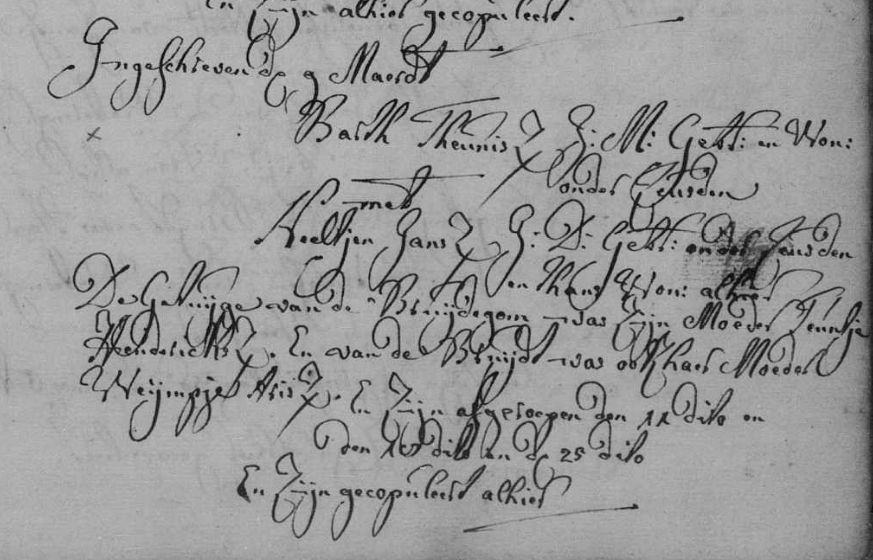 En Zijn alhier gecopuleert.
Ingeschreven de 9 Maerdt
Barth Theunisz J: M: Gebt: en Won:
onder Leusden
met
Neeltjen Jans J: D: Gebt: onder Leusden
en thans Won: alhier
De Getuijge van de Bruijdegom was Zijn Moeder Teuntje
Hendericks. En van de Bruijdt was ook haer Moeder
Weijmpje Aris. En Zijn afgeroepen den 11 dito en
den 18 dito en de 25 dito
En Zijn gecopuleert alhier